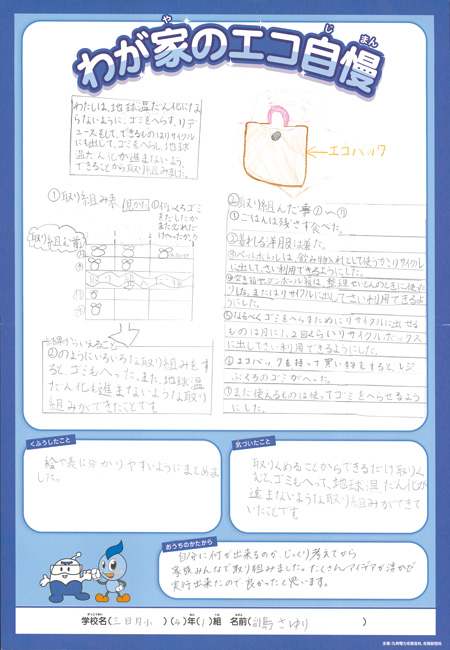 わが家のエコ自慢
や
じまん
わたしは、地球温だん化にな
らないように、ゴミをへらす、リデ
ュースをして、できるものはリサイクル
にも出して、ゴミをへらし、地球
温だん化が進まないよう、
できることから取り組みました。
エコバック
①取り組み表
取り組む前
1
2
3
結果からいえること
②のようにいろいろな取り組みをす
ると、ゴミもへった。また、地球温
だん化も進まないような取り
組みができたことです。
②取り組んだ事①～⑦
①ごはんは残さず食べた。
②着れる洋服は着た。
③ペットボトルは、飲み物入れとして使うかリサイクル
に出して、さい利用できるようにした。
④空き箱やダンボール箱は、整理せいとんのときに使った
りした。またはリサイクルに出してさい利用できるよ
うにした。
⑤なるべくゴミをへらすためにリサイクルに出せる
ものは月に1、2回くらいリサイクルボックス
に出してさい利用できるようにした。
⑥エコバックを持って買い物をすると、レジ
ぶくろのゴミがへった。
⑦まだ使えるものは使ってゴミをへらせるよう
にした。
くふうしたこと
絵や表に分かりやすいようにまとめま
した。
気づいたこと
取りくめることからできるだけ取りく
むと、ゴミもへって、地球温だん化が
進まないような取り組みができて
いたことです。
おうちのかたから
自分に何が出来るのか じっくり考えてから
家族みんなで取り組みました。たくさんアイデアが浮かび
実行出来たので良かったと思います。
がっこうめい ねん くみ なまえ
学校名(三日月小)(4)年(1)組 名前(副島 さゆり)
主催/九州電力佐賀支社、佐賀新聞社